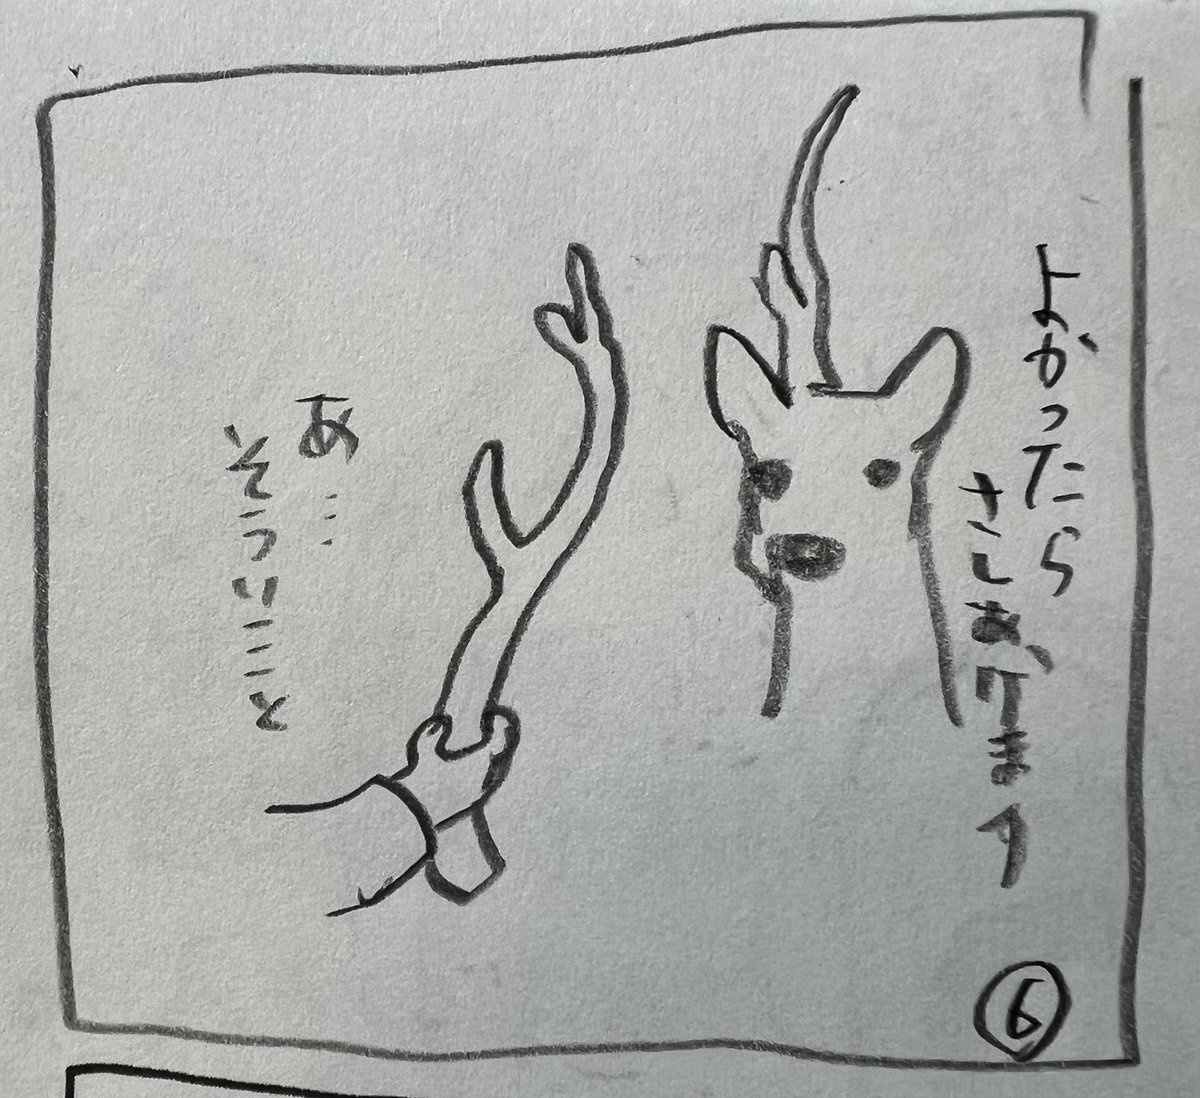 よかったら
さしあげます
あ…
そっにこと
⑥